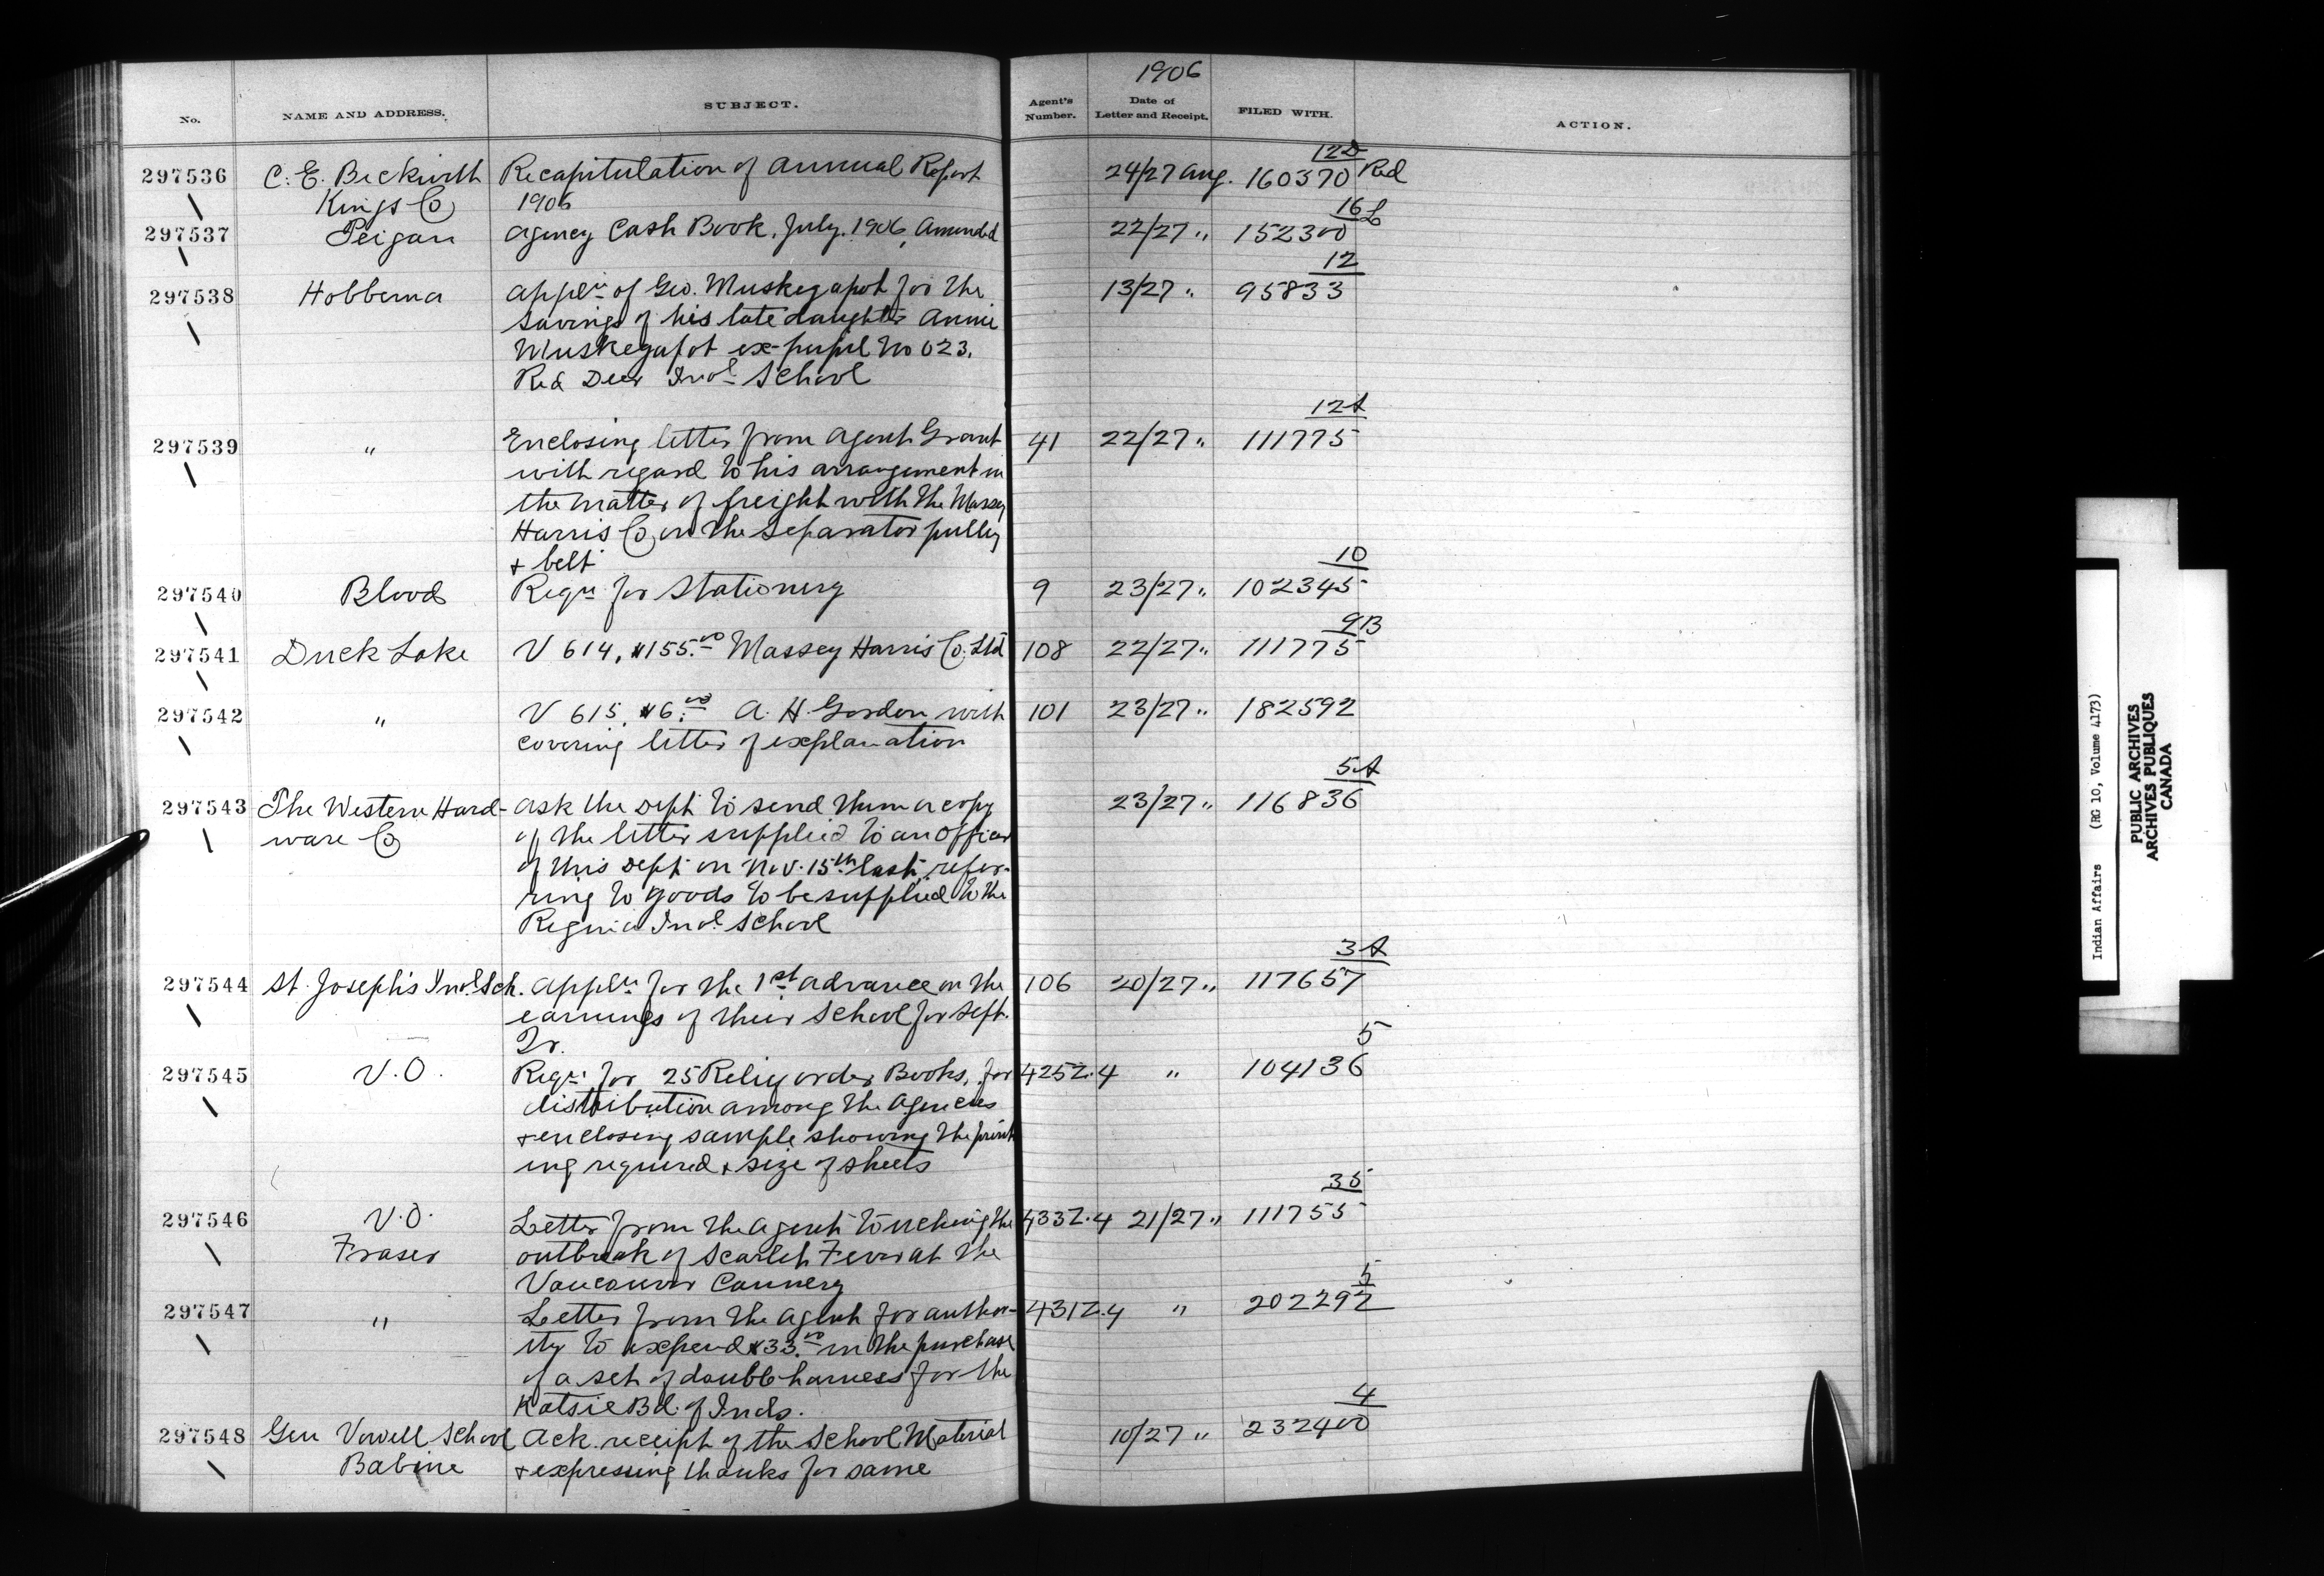 1906
No. NAME AND ADDRESS. SUBJECT. Agent's Number. Date of Letter and Receipt. FILED WITH. ACTION.
12D
297536 C. E. Beckwith Recapitulation of Annual Report 24/27 Aug. 160370 Red
Kings Co 1906
16 L
297537 Peigan Agency Cash Book, July, 1906, Amended 22/27 " 152300
12
297538 Hobbema Appln of Geo. Muskegapot for the 13/27 " 95833
savings of his late daughter Annie
Muskegapot ex-pupil No 023,
Red Deer Indl School
12A
297539 " Enclosing letter from Agent Grant 41 22/27 " 111775
with regard to his arrangement in
the matter of freight with the Massey
Harris Co on the separator pulley
& belt
10
297540 Blood Reqn for Stationery 9 23/27 " 102345
9B
297541 Duck Lake V 614, $155.00 Massey Harris Co. Ltd 108 22/27 " 111775
297542 " V 615, $6.00 A. H. Gordon with 101 23/27 " 182592
covering letter of explanation
5A
297543 The Western Hard- ask the Dept to send them a copy 23/27 " 116836
ware Co of the letter supplied to an officer
of this Dept on Nov. 15th last, refer-
ring to goods to be supplied to the
Regina Indl School
3A
297544 St. Joseph's Indl Sch. Appln for the 1st advance on the 106 20/27 " 117657
earnings of their School for Sept.
Qr.
5
297545 V.O. Reqn for 25 Relig order Books, for 425Z.4 " 104136
distribution among the Agencies
& enclosing sample showing the print
ing required & size of sheets
35
297546 V.O. Letter from the Agent touching the 433Z.4 21/27 " 111755
Fraser outbreak of Scarlet Fever at the
Vancouver Cannery
5
297547 " Letter from the Agent for author- 431Z.4 " 202292
ity to expend $33.00 in the purchase
of a set of double harness for the
Katsie Bd. of Inds.
4
297548 Gen Vowell School Ack. receipt of the School Material 10/27 " 232400
Babine & expressing thanks for same
Indian Affairs (RG 10, Volume 4173)
PUBLIC ARCHIVES
ARCHIVES PUBLIQUES
CANADA